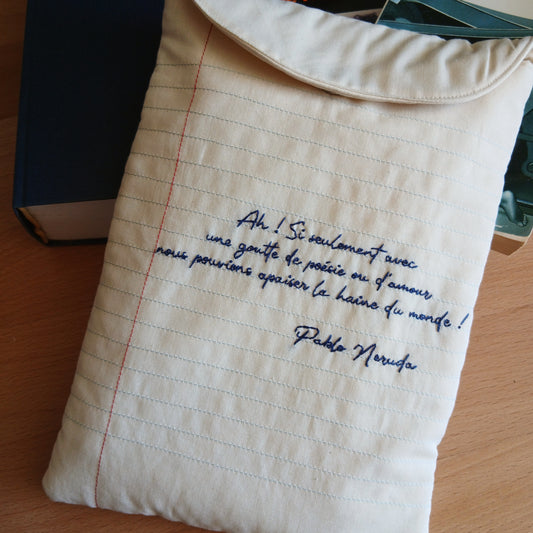 Ah ! Si seulement avec
une goutte de poésie ou d'amour
nous pouvions apaiser la haine du monde !
Pablo Neruda